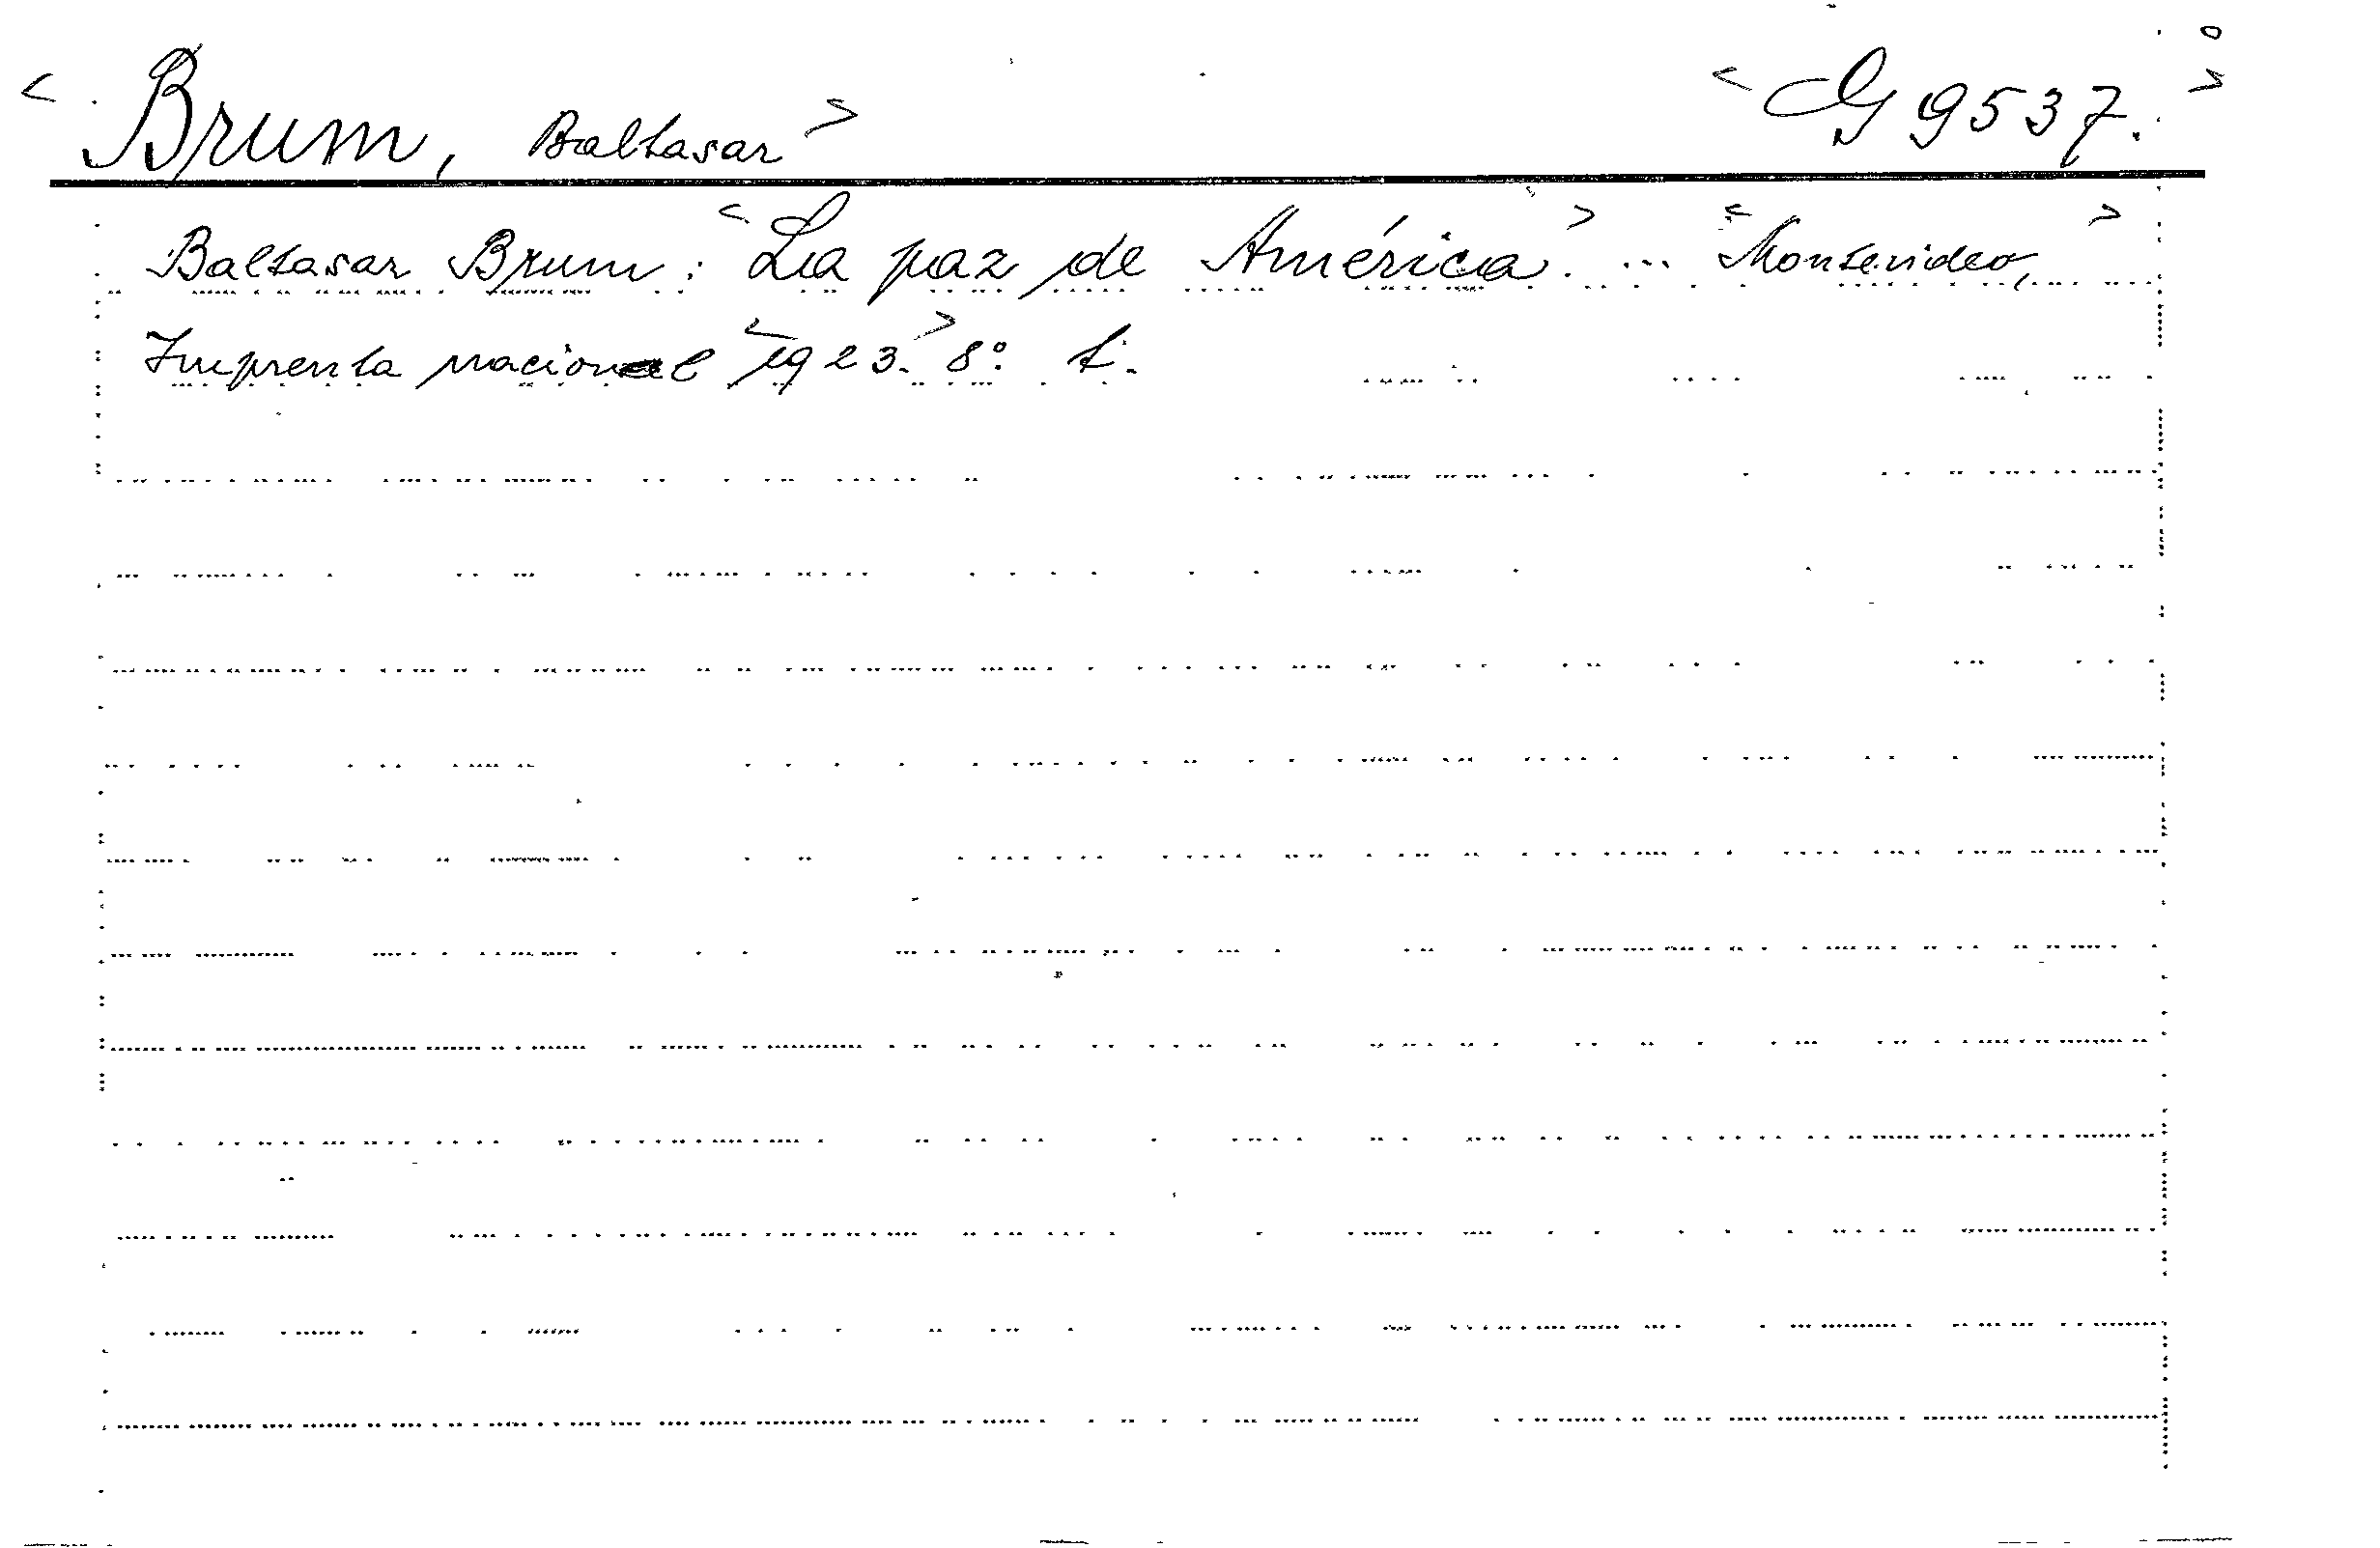 < Brum, Baltasar > < G 9537. >
Baltasar Brum: < La paz de América >. ... < Montevideo, >
Imprenta nacional < 1923. > 8°.